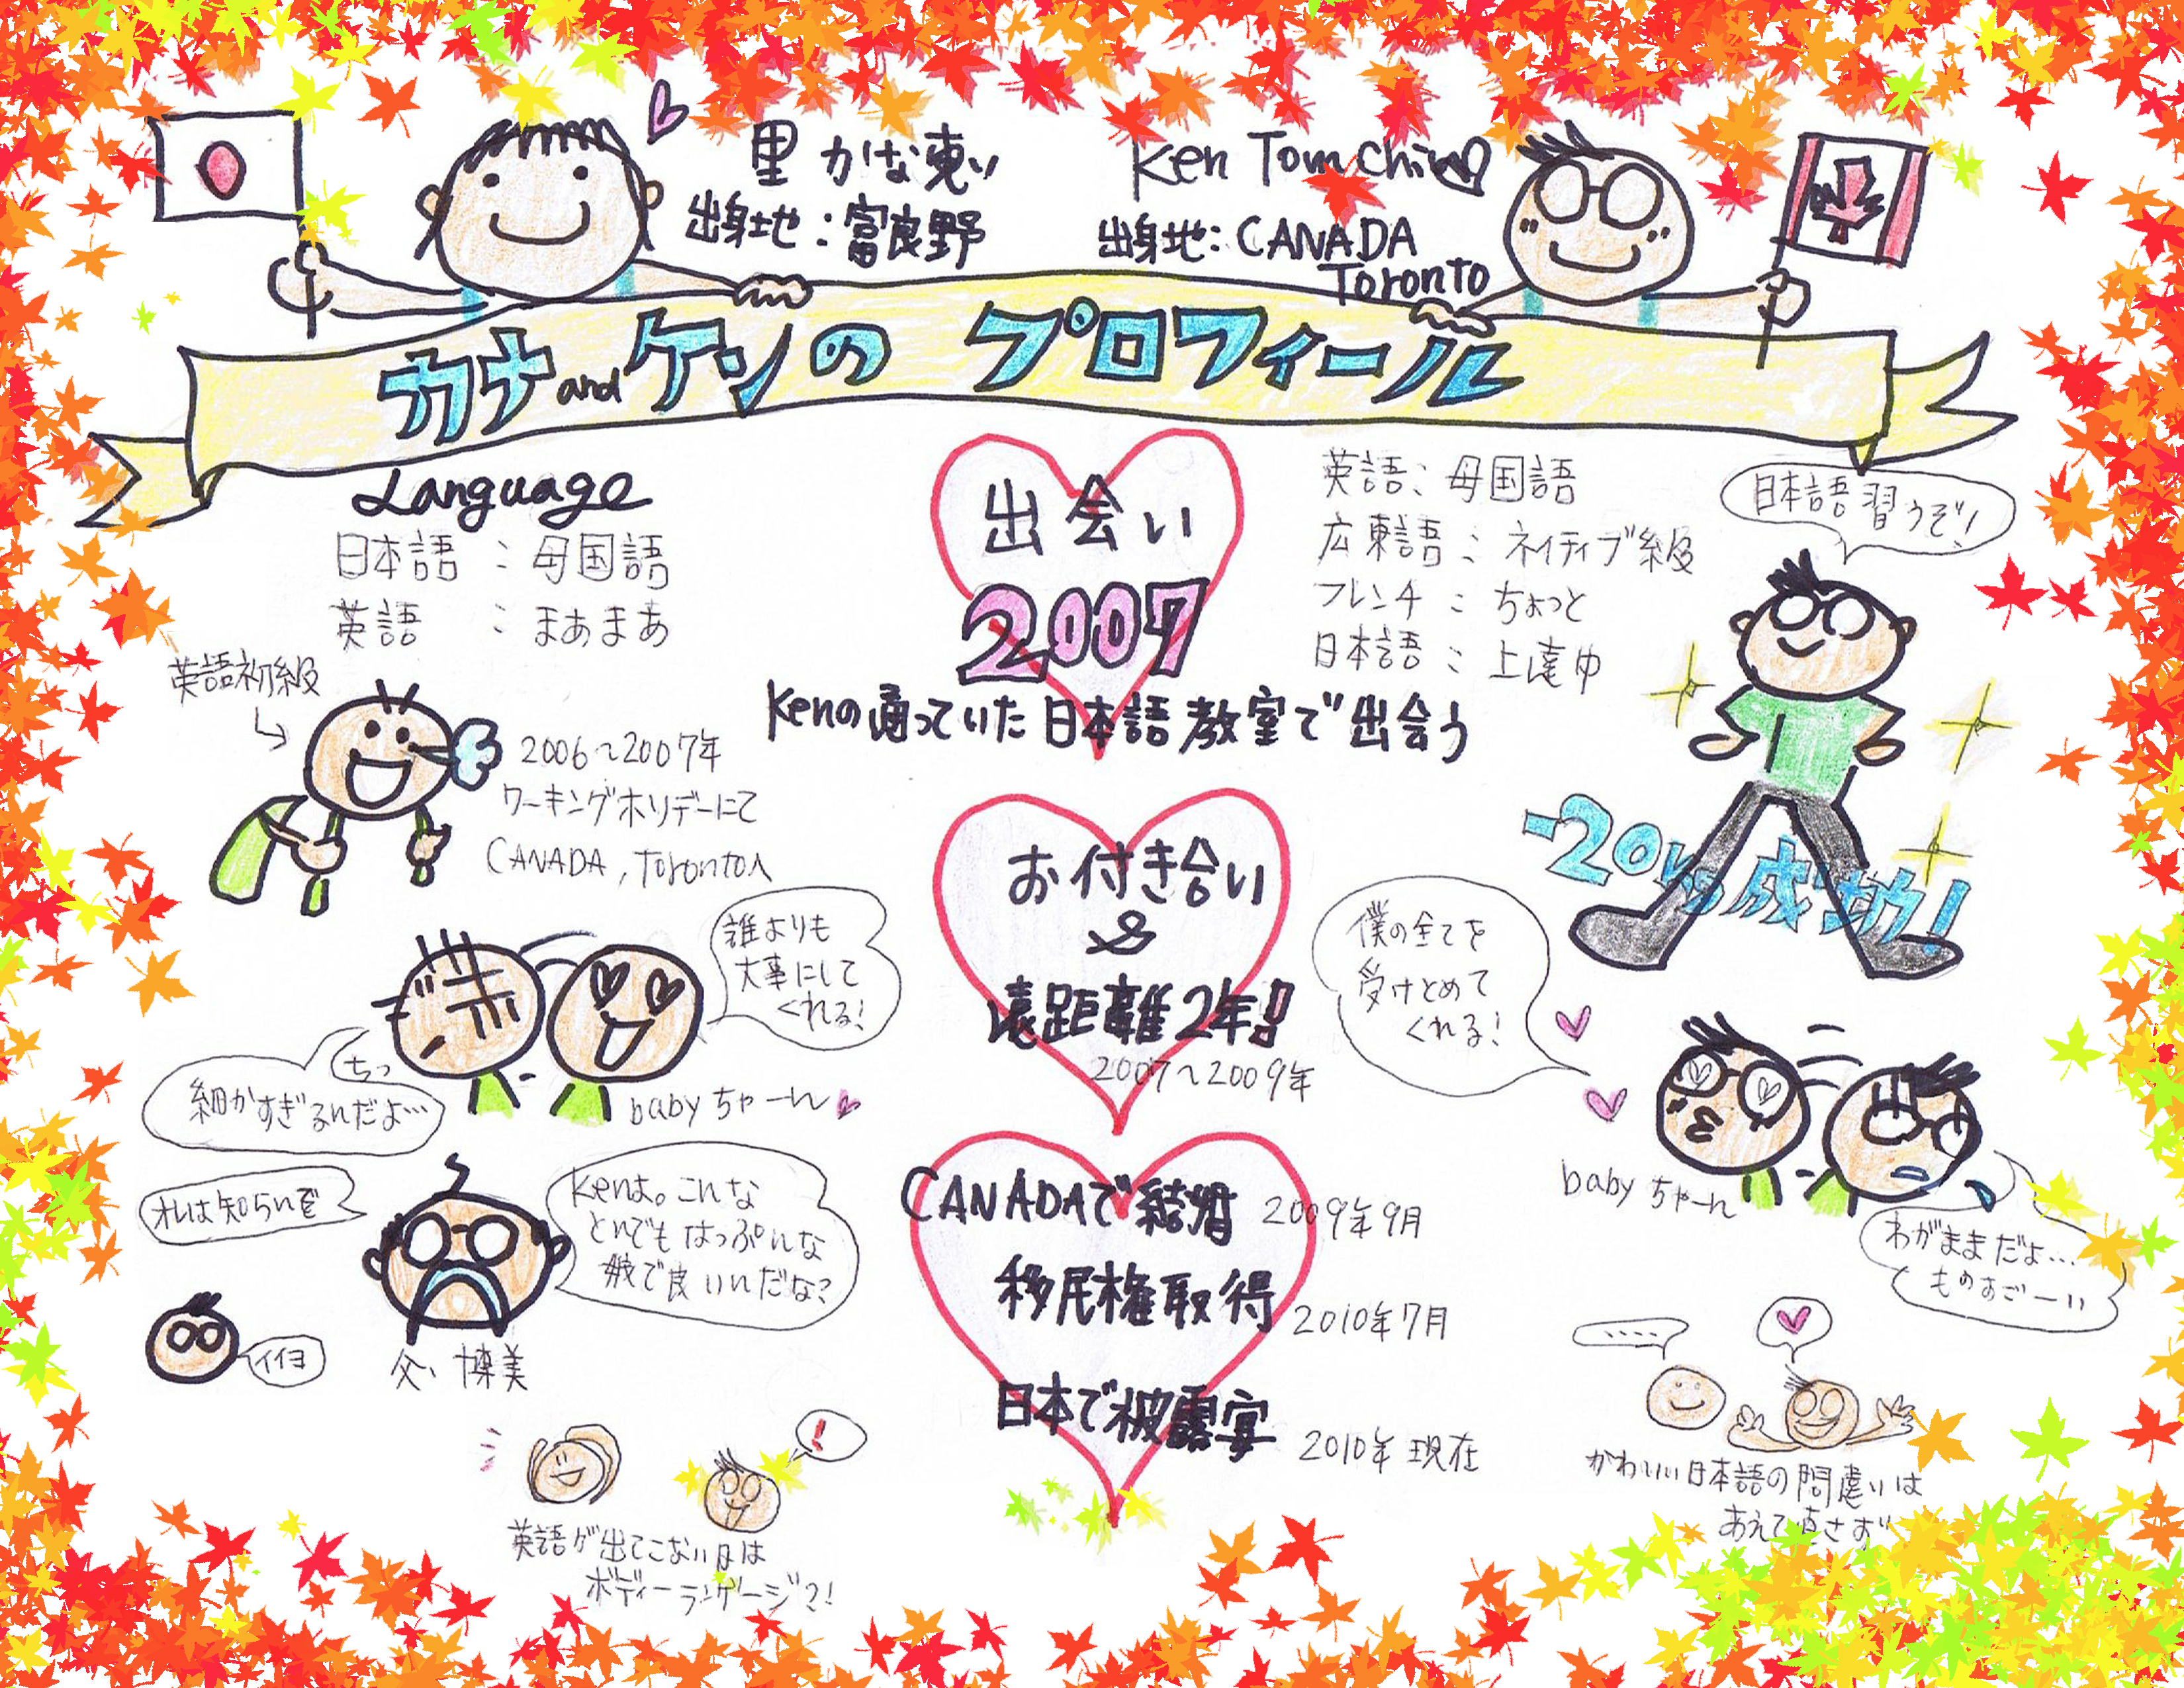 出身地：富良野
Ken Tom Chin
出身地：CANADA
Toronto
カナandケンの プロフィール
Language
日本語：母国語
英語：まぁまぁ
英語初級
2006〜2007年
ワーキングホリデーにて
CANADA, Torontoへ
誰よりも
大事にして
くれる！
ちっ
細かすぎるんだよ…
babyちゃーん
オレは知らんぞ
Kenよ。こんな
とんでもはっぷんな
娘で良いんだな？
イイヨ
父、博美
英語が出てこない日は
ボディーランゲージ？！
出会い
2007
Kenの通っていた日本語教室で出会う
お付き合い
&
遠距離2年!!
2007〜2009年
CANADAで結婚 2009年9月
移民権取得 2010年7月
日本で披露宴 2010年現在
英語：母国語
広東語：ネイティブ級
フレンチ：ちょっと
日本語：上達中
日本語習うぞ！
-20kg成功！
僕の全てを
受けとめて
くれる！
babyちゃーん
わがままだよ…
ものすごーい
....
かわいい日本語の間違いは
あえて直さず